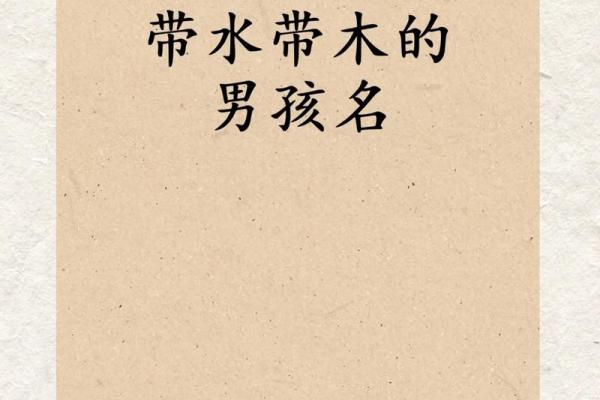 带水带木的
男孩名